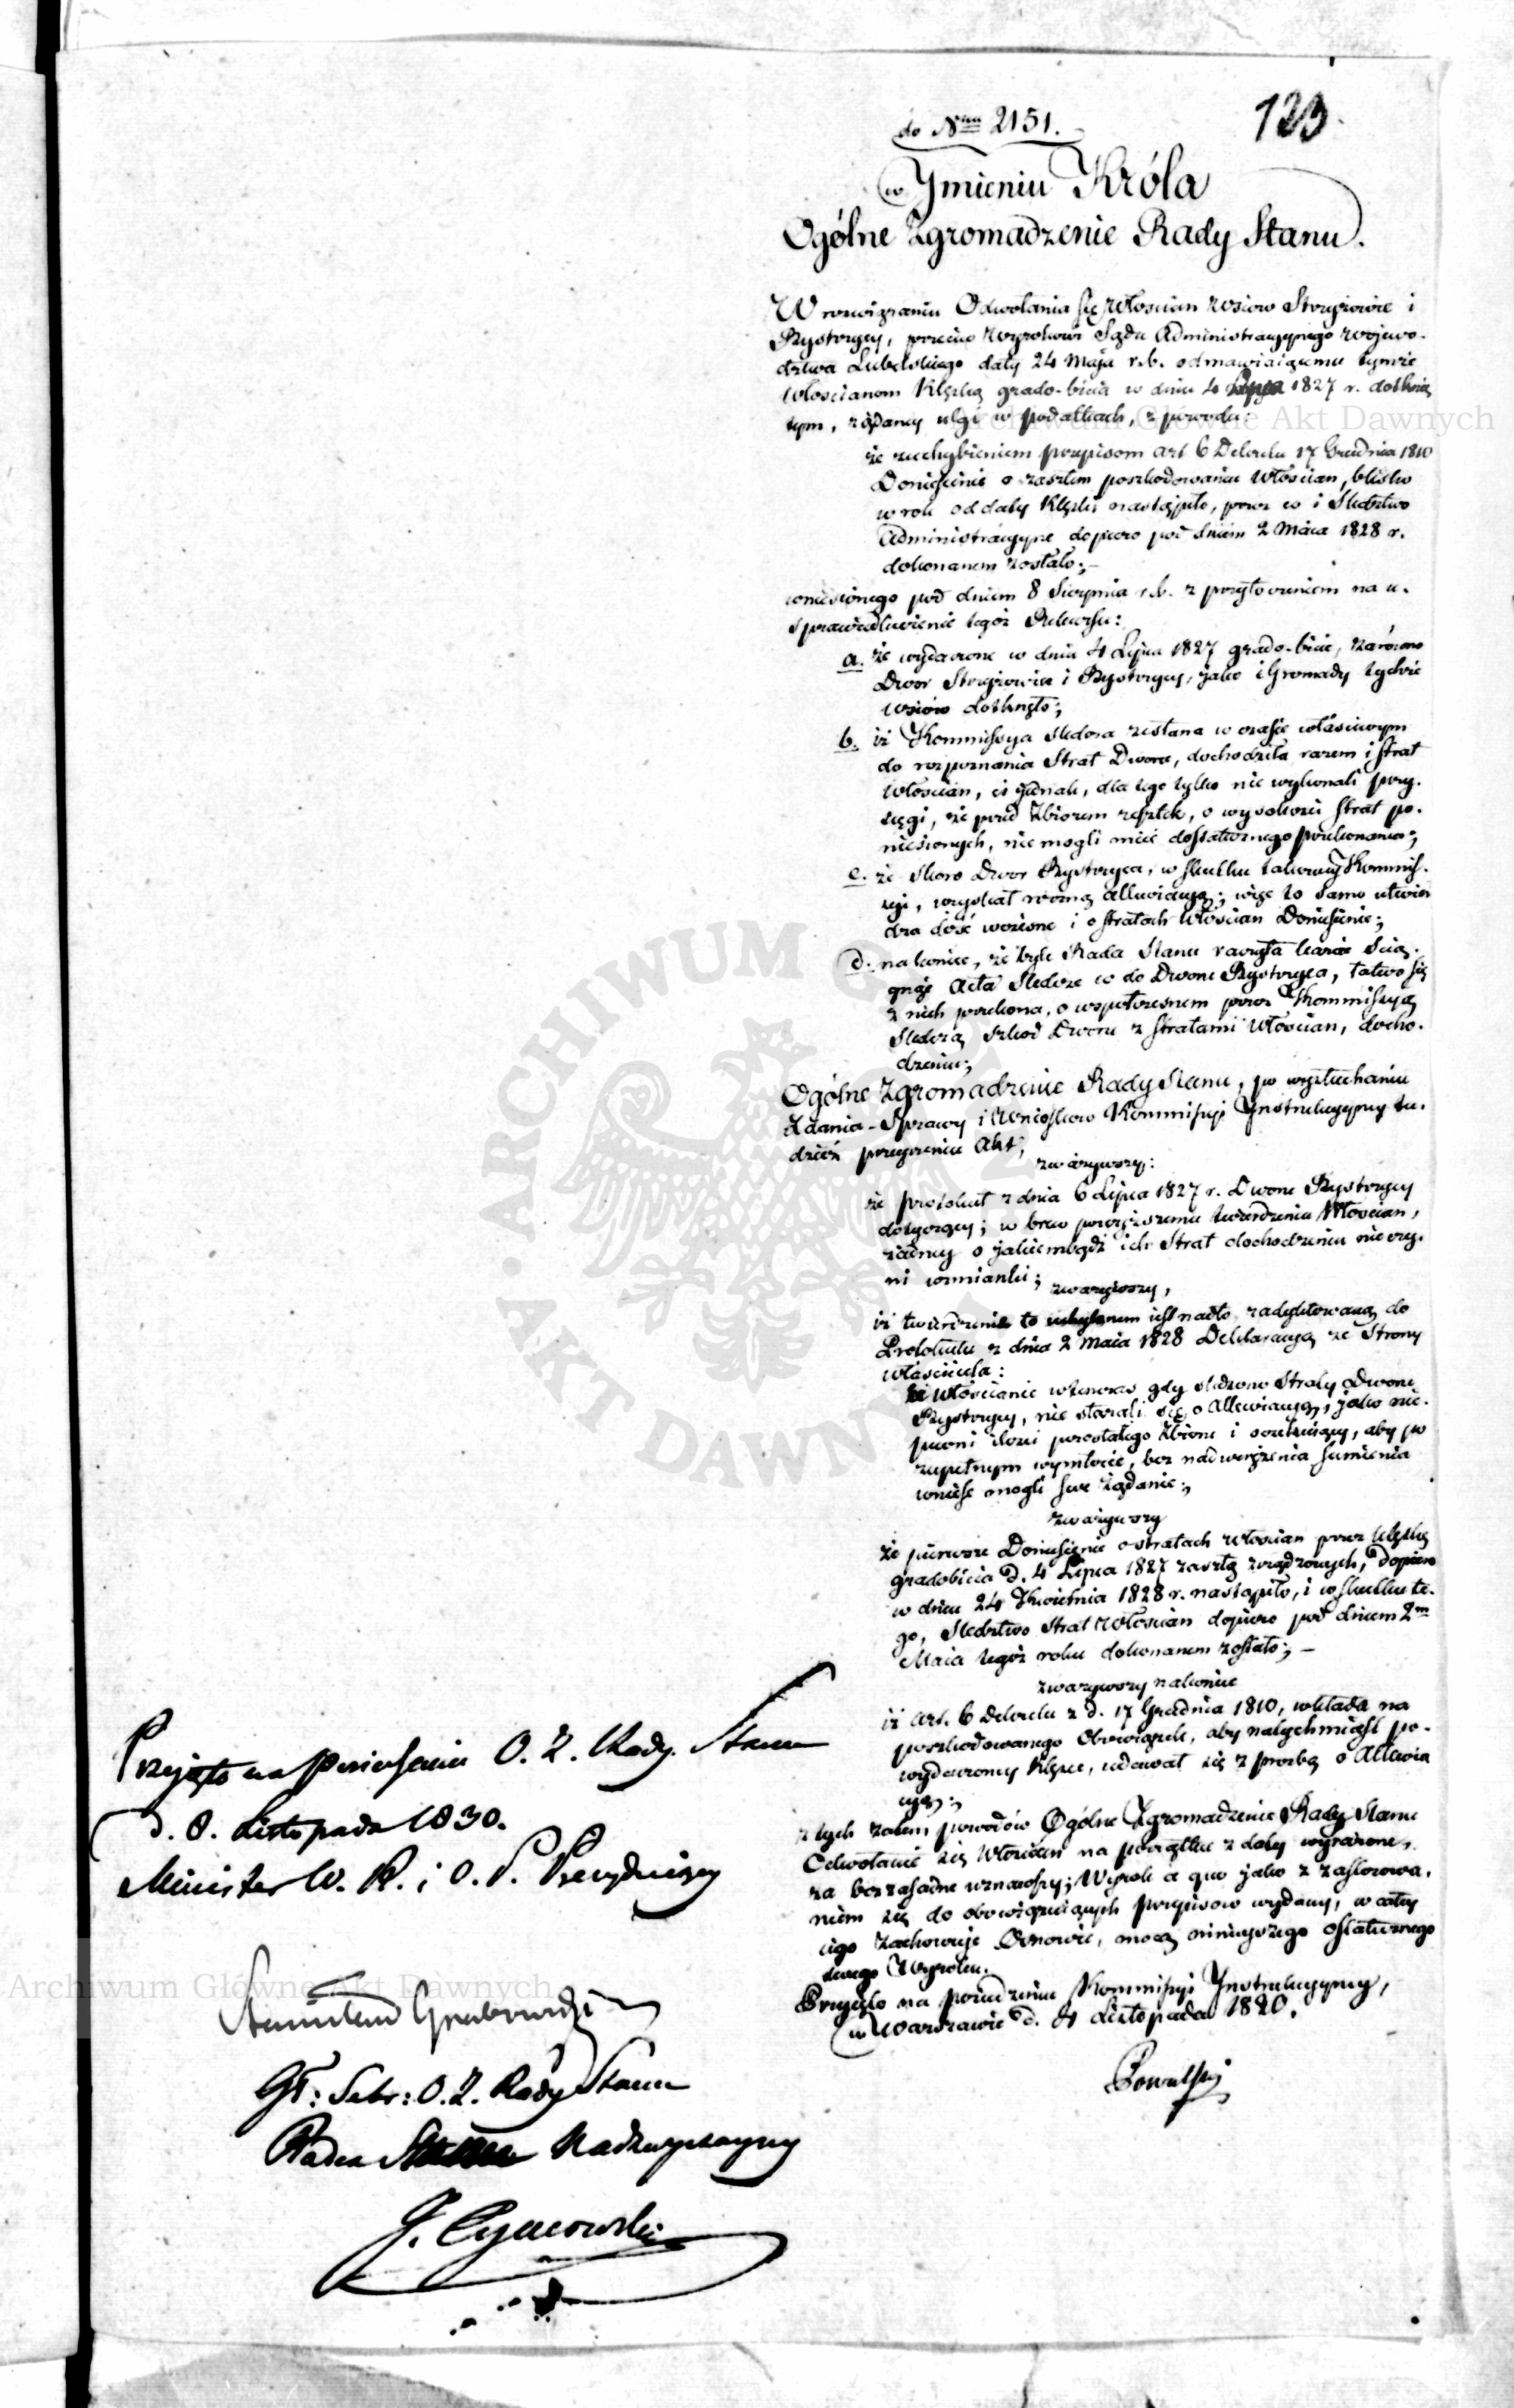 123.
do Nru 2151.
w Ymieniu Króla
Ogólne Zgromadzenie Rady Stanu.
W rozwiązaniu Odwołania się Włościan wsiow Strzyżowice i
Bystrzycy, przeciw Wyrokowi Sądu Administracyjnego Wojewo-
dztwa Lubelskiego daty 24 Maja r.b. odmawiaiącemu tymże
Włościanom Klęską grado-bicia w dniu 4 Lipca 1827 r. dotknię
tym, żądaney ulgi w podatkach, z powodu:
że zuchybieniem przepisom art 6 Dekretu 17 Grudnia 1810
Doniesienie o zaszłem poszkodowaniu Włościan, blisko
w rok od daty Klęski nastąpiło, przez co i Śledztwo
Administracyjne dopiero pod dniem 2 Maia 1828 r.
dokonanem zostało;—
wniesionego pod dniem 8 Sierpnia r.b. z przytoczeniem na u-
sprawiedliwienie tegoż Rekursu:
a. że wydarzone w dniu 4 Lipca 1827 grado-bicie, zarówno
Dwor Strzyżowice i Bystrzycy, jako i Gromady tychże
wsiów dotknęło;
b. iż Kommissya śledcza zesłana w czasie właściwym
do rozpoznania Strat Dworu, dochodziła razem i strat
Włościan, ci jednak, dla tego tylko nie wykonali przy-
sięgi, że przed Zbiorem resztek, o wysokości strat po-
niesionych, nie mogli mieć dostatecznego przekonania;
c. że skoro Dwor Bystrzyca, w skutku takowey Kommis-
syi, uzyskał roczną allewiacyą; więc to samo utwier
dza dość wczesne i o stratach Włościan Doniesienie;
d. nakoniec, że byle Rada Stanu raczyła kazać ścią-
gnąć Acta Śledcze co do Dworu Bystrzyca, łatwo się
z nich przekona, o współczesnem przez Kommissyą
Śledczą szkod Dworu z stratami Włościan, docho-
dzeniu;
Ogólne Zgromadzenie Rady Stanu, po wysłuchaniu
Zdania-Sprawy i Wniosków Kommissyi Ynstrukcyyney tu-
dzież przeyrzeniu Akt;
zważywszy:
że protokuł z dnia 6 Lipca 1827 r. Dworu Bystrzycy
dotyczący; w brew powyższemu twierdzeniu Włościan,
żadney o jakiembądź ich Strat dochodzeniu nie czy-
ni wzmianki;
zważywszy,
iż twierdzenie to uchylonem iest nadto zadyktowaną do
Protokułu z dnia 2 Maia 1828 Deklaracyą ze Strony
właściciela:
iż Włościanie wówczas gdy śledzono Straty Dworu
Bystrzycy, nie starali się o Allewiacyą, jako nie-
pewni ilości pozostałego Zbioru i oczekuiący, aby po
zupełnym wymłocie, bez nadwerężenia sumienia
wnieść mogli swe żądanie;
zważywszy
że pierwsze Doniesienie o stratach Włościan przez klęskę
gradobicia d. 4 Lipca 1827 zaszłą zrządzonych, dopiero
w dniu 24 Kwietnia 1828 r. nastąpiło, i w skutku te-
go, Śledztwo Strat Włościan dopiero pod dniem 2m
Maia tegoż roku dokonanem zostało;—
zważywszy nakoniec
iż art. 6 Dekretu z d. 17 Grudnia 1810, wkłada na
poszkodowanego Obowiązek, aby natychmiast po
wydarzoney klęsce, udawał się z prozbą o Allewia
cyą;
z tych zatem powodów Ogólne Zgromadzenie Rady Stanu
Odwołanie się Włościan na początku z daty wyrażone,
za bezzasadne uznawszy; Wyrok a quo jako z zastosowa-
niem się do obowiązuiących przepisow wydany, w całey
iego zachowuje Osnowie, mocą ninieyszego ostatecznego
swego Wyroku.
Przyięto na posiedzeniu Kommissyi Ynstrukcyyney,
w Warszawie d. 4 Listopada 1830.
Kowalski
Przyjęto na posiedzeniu O. Z. Rady Stanu
d. 8. Listopada 1830.
Minister W. R. i O. P. Prezyduiący
Stanisław Grabowski
Gł: Sekr: O. Z. Rady Stanu
Radca Stanu Nadzwyczayny
J. Tymowski
Archiwum Główne Akt Dawnych
Archiwum Główne Akt Dawnych
ARCHIWUM
AKT DAWNYCH